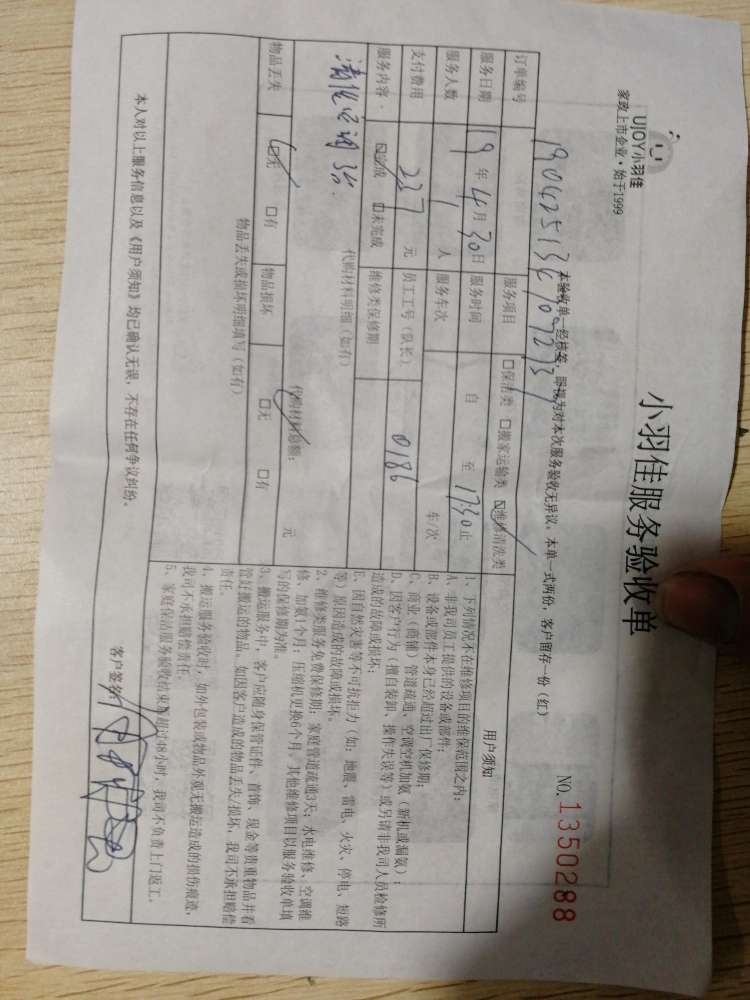 UJOY小羽佳
家政上市企业·始于1999
小羽佳服务验收单
NO. 1350288
本验收单一经核签，即视为对本次服务验收无异议。本单一式两份，客户留存一份（红）
订单编号
服务项目 □保洁类 □搬家运输类 ☑维修清洗类
服务日期 19年4月30日 服务时间 自 至 17:30止
服务人数 1人 服务车次 车/次
支付费用 237元 员工工号（队长） 0186
服务内容： ☑完成 □未完成 维修类保修期
清洗空调3台.
代购材料明细（如有）
代购材料总额： 元
物品丢失 ☑无 □有 物品损坏 □无 □有
物品丢失或损坏明细填写（如有）
用户须知
1、下列情况不在维修项目的维保范围之内：
A、非我司员工提供的设备或部件；
B、设备或部件本身已经超过出厂保修期；
C、商业（商铺）管道疏通、空调空机加氨（新机或漏氨）；
D、因客户行为（擅自装卸、操作失误等）或另请非我司人员检修所
造成的故障或损坏；
E、因自然灾害等不可抗拒力（如：地震、雷电、火灾、停电、短路
等）原因造成的故障或损坏。
2、维修类服务免费保修期：家庭管道疏通3天；水电维修、空调维
修、加氨1个月；压缩机更换6个月；其他维修项目以服务验收单填
写的保修期为准。
3、搬运服务中，客户应随身保管证件、首饰、现金等贵重物品并看
管好搬运的物品。如因客户造成的物品丢失/损坏，我司不承担赔偿
责任。
4、搬运服务验收时，如外包装或物品外观无搬运造成的损伤痕迹，
我司不承担赔偿责任。
5、家庭保洁服务验收结束后超过48小时，我司不负责上门返工。
本人对以上服务信息以及《用户须知》均已确认无误，不存在任何争议纠纷。
客户签名